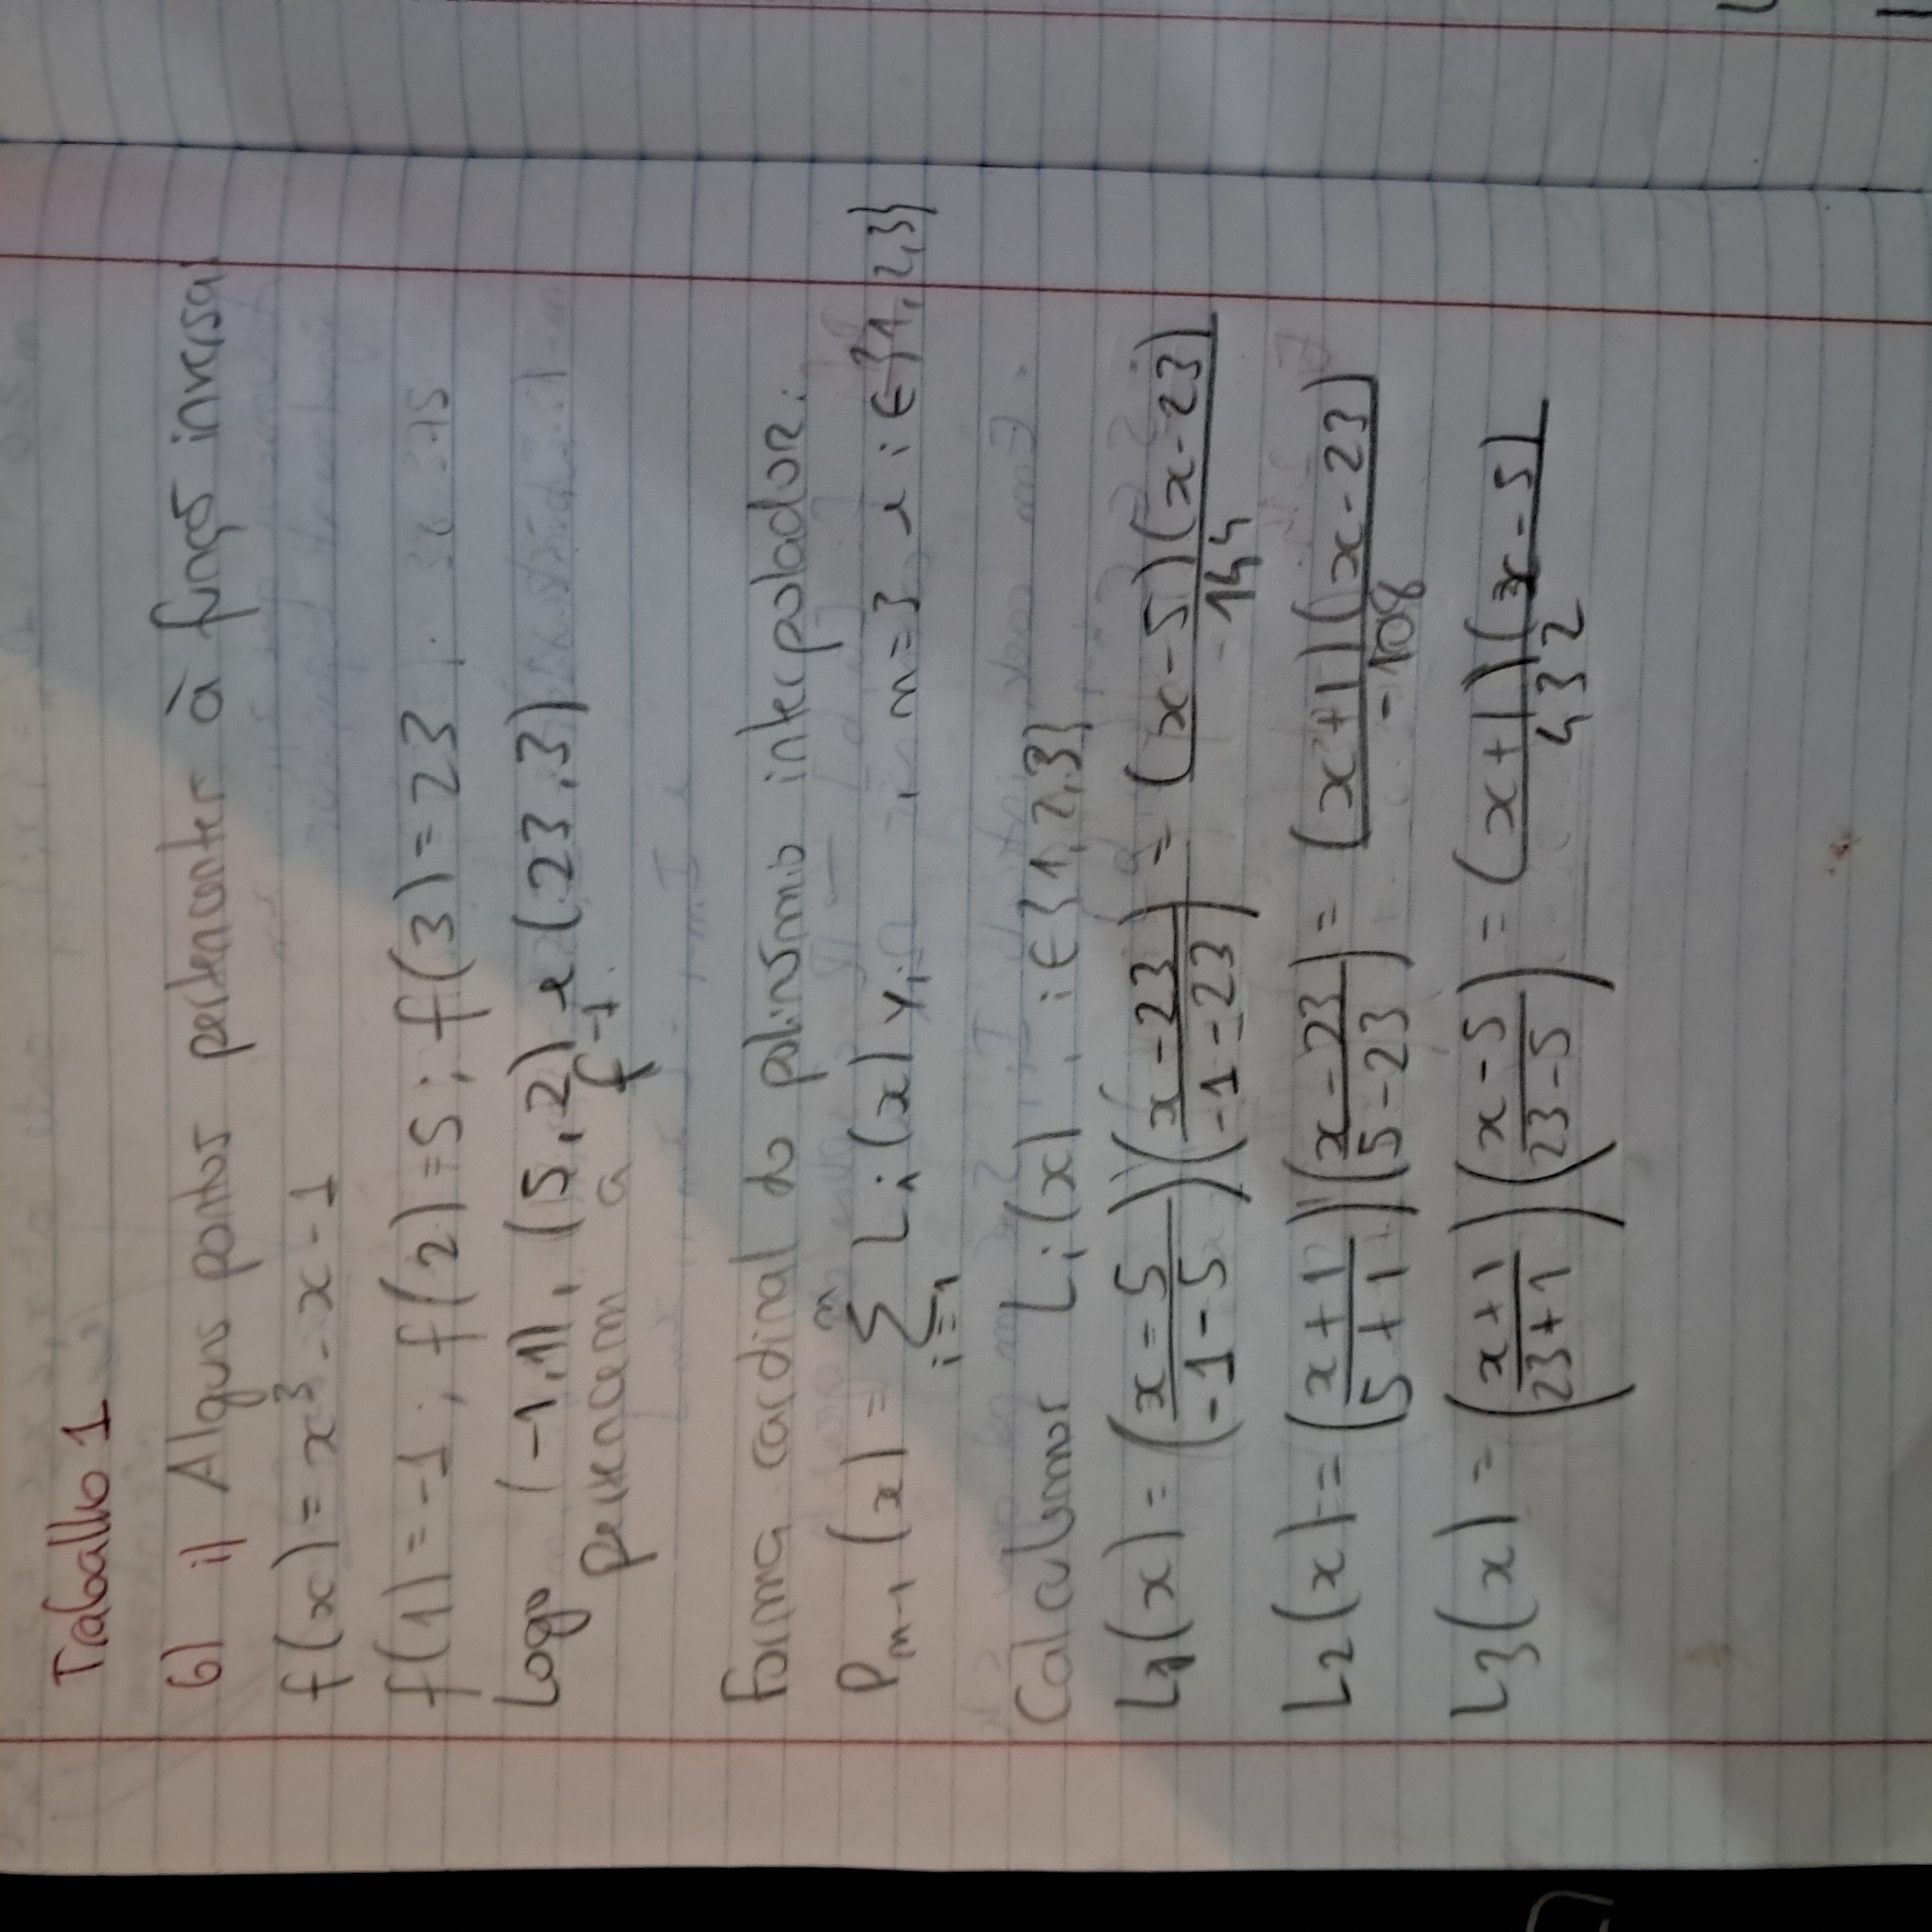 Trabalho 1
6) i) Alguns pontos pertencentes à função inversa
f(x) = x³ - x - 1
f(1) = -1 ; f(2) = 5 ; f(3) = 23
Logo (-1,1), (5,2) e (23,3)
pertencem a f⁻¹.
Forma cardinal do polinômio interpolador:
Pₙ₋₁(x) = Σⁿᵢ₌₁ Lᵢ(x) yᵢ , n = 3 e i ∈ {1,2,3}
Calculamos Lᵢ(x) , i ∈ {1,2,3}
L₁(x) = ((x-5)/(-1-5)) ((x-23)/(-1-23)) = (x-5)(x-23)/144
L₂(x) = ((x+1)/(5+1)) ((x-23)/(5-23)) = (x+1)(x-23)/-108
L₃(x) = ((x+1)/(23+1)) ((x-5)/(23-5)) = (x+1)(x-5)/432